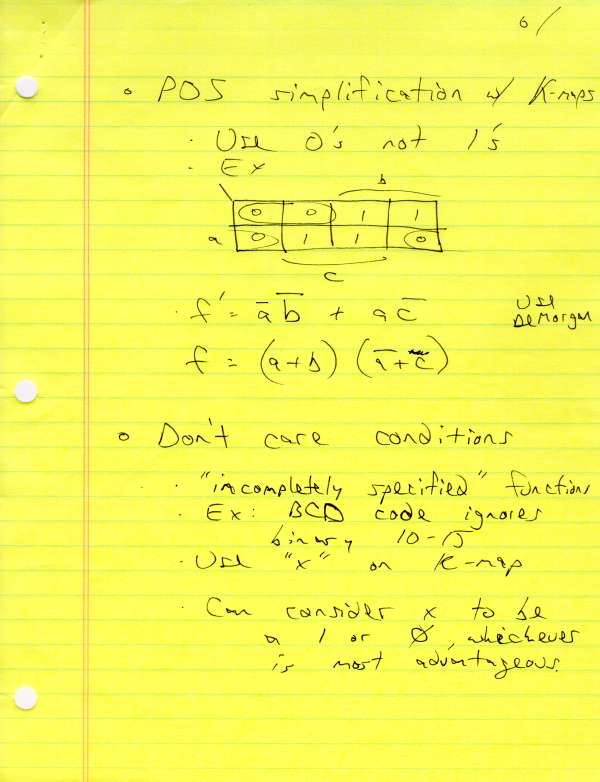 6/
• POS simplification w/ K-maps
· Use 0's not 1's
· Ex
b
0 0 1 1
a 0 1 1 0
c
· f' = a̅ b̅ + a c̅
Use
DeMorgan
f = (a+b) (a̅+c)
• Don't care conditions
· "incompletely specified" functions
· Ex: BCD code ignores
binary 10-15
· Use "x" on K-map
· Can consider x to be
a 1 or 0, whichever
is most advantageous.